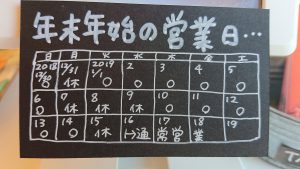 年末年始の営業日…
日 月 火 水 木 金 土
2018 12/30 12/31 2019 1/1 2 3 4 5
○ 休 ○ ○ ○ ○ ○
6 7 8 9 10 11 12
○ 休 休 ○ ○ ○ ○
13 14 15 16 17 18 19
○ ○ 休 ↦通常営業